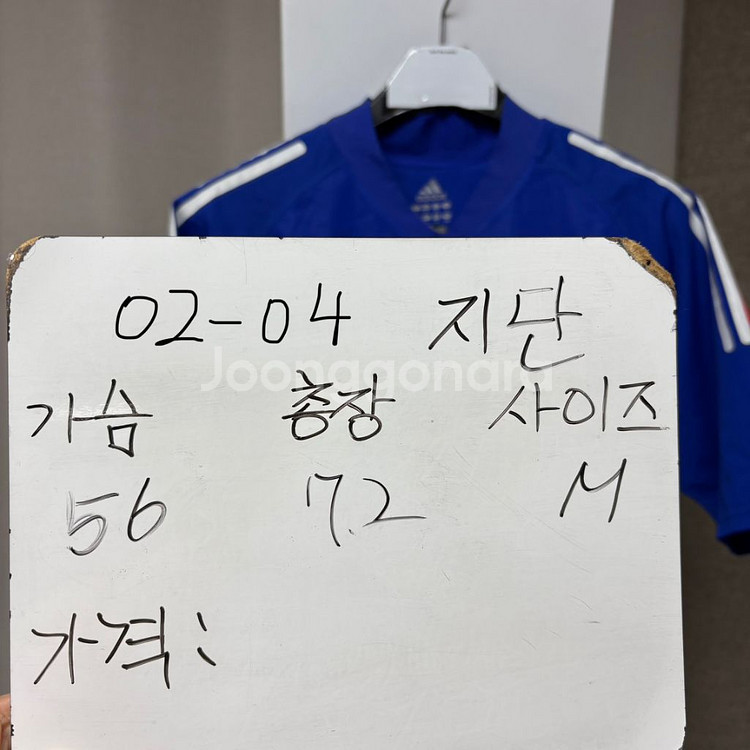 02-04 지단
가슴 총장 사이즈
56 72 M
가격:
Joonggonara